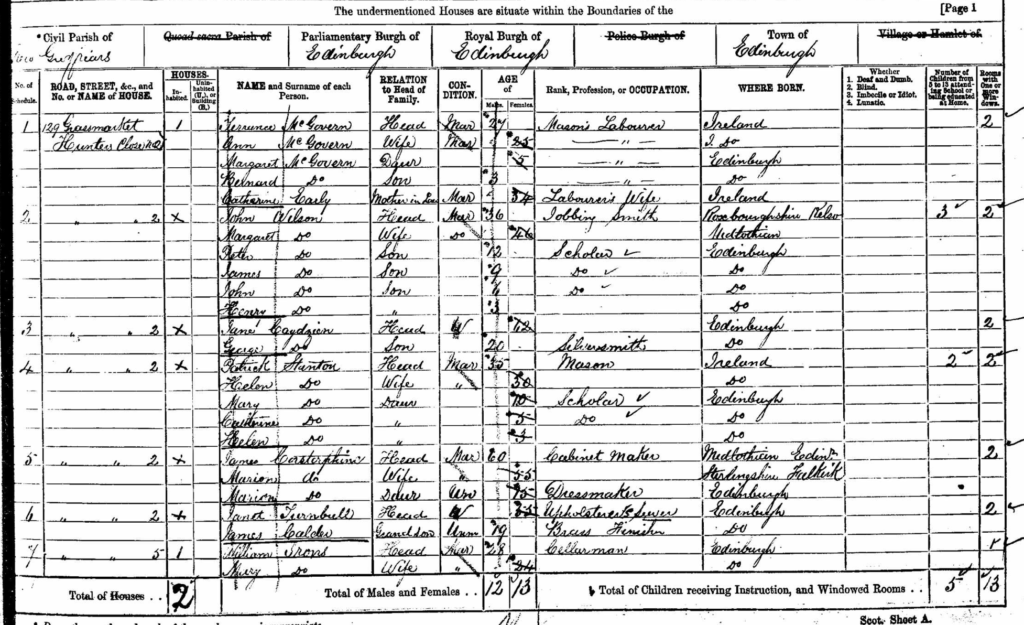 The undermentioned Houses are situate within the Boundaries of the [Page 1
Civil Parish of Quoad sacra Parish of Parliamentary Burgh of Royal Burgh of Police Burgh of Town of Village or Hamlet of
Greyfriars Edinburgh Edinburgh Edinburgh
No. of Schedule. ROAD, STREET, &c., and No. or NAME of HOUSE. HOUSES. In-habited. Unin-habited (U.), or Building (B.) NAME and Surname of each Person. RELATION to Head of Family. CON-DITION. AGE of Males. Females. Rank, Profession, or OCCUPATION. WHERE BORN. Whether 1. Deaf and Dumb. 2. Blind. 3. Imbecile or Idiot. 4. Lunatic. Number of Children from 5 to 13 attending School or being educated at Home. Rooms with One or more Windows.
1 129 Grassmarket 1 Terrunce McGovern Head Mar 27 Mason's Labourer Ireland 2
Hunters Close No 2 Ann McGovern Wife Mar 25 " Do
Margaret McGovern Daur 5 " Edinburgh
Bernard Do Son 3 " Do
Catherine Early Mother in Law Mar 54 Labourer's Wife Ireland
2 " " 2 x John Wilson Head Mar 36 Jobbing Smith Roxboroughshire Kelso 3 2
Margaret Do Wife Do 46 Midlothian
Peter Do Son 12 Scholar Edinburgh
James Do Son 9 Do Do
John Do Son Do Do
Henry Do " 3 Do
3 " " 2 x Jane Head W 62 Edinburgh 2
George Do Son 20 Silversmith Do
4 " " 2 x Patrick Stanton Head Mar 35 Mason Ireland 2 2
Helen Do Wife " 30 Do
Mary Do Daur 10 Scholar Edinburgh
Catherine Do " 5 Do Do
Helen Do " 3 Do
5 " " 2 x James Corstorphine Head Mar 60 Cabinet Maker Midlothian Edinr 2
Marion do Wife " 55 Sterlingshire Falkirk
Marion Do Daur Unr Dressmaker Edinburgh
6 " " 2 x Janet Turnbull Head W Upholsterer's Sewer Edinburgh 2
James Calder Grandson Unm 19 Brass Finisher Do
7 " " 5 1 William Irons Head Mar 28 Cellerman Edinburgh 1
Mary Do Wife " 24 Do
Total of Houses . . 2 Total of Males and Females . . 12 13 Total of Children receiving Instruction, and Windowed Rooms . . 5 13
Scot. Sheet A.